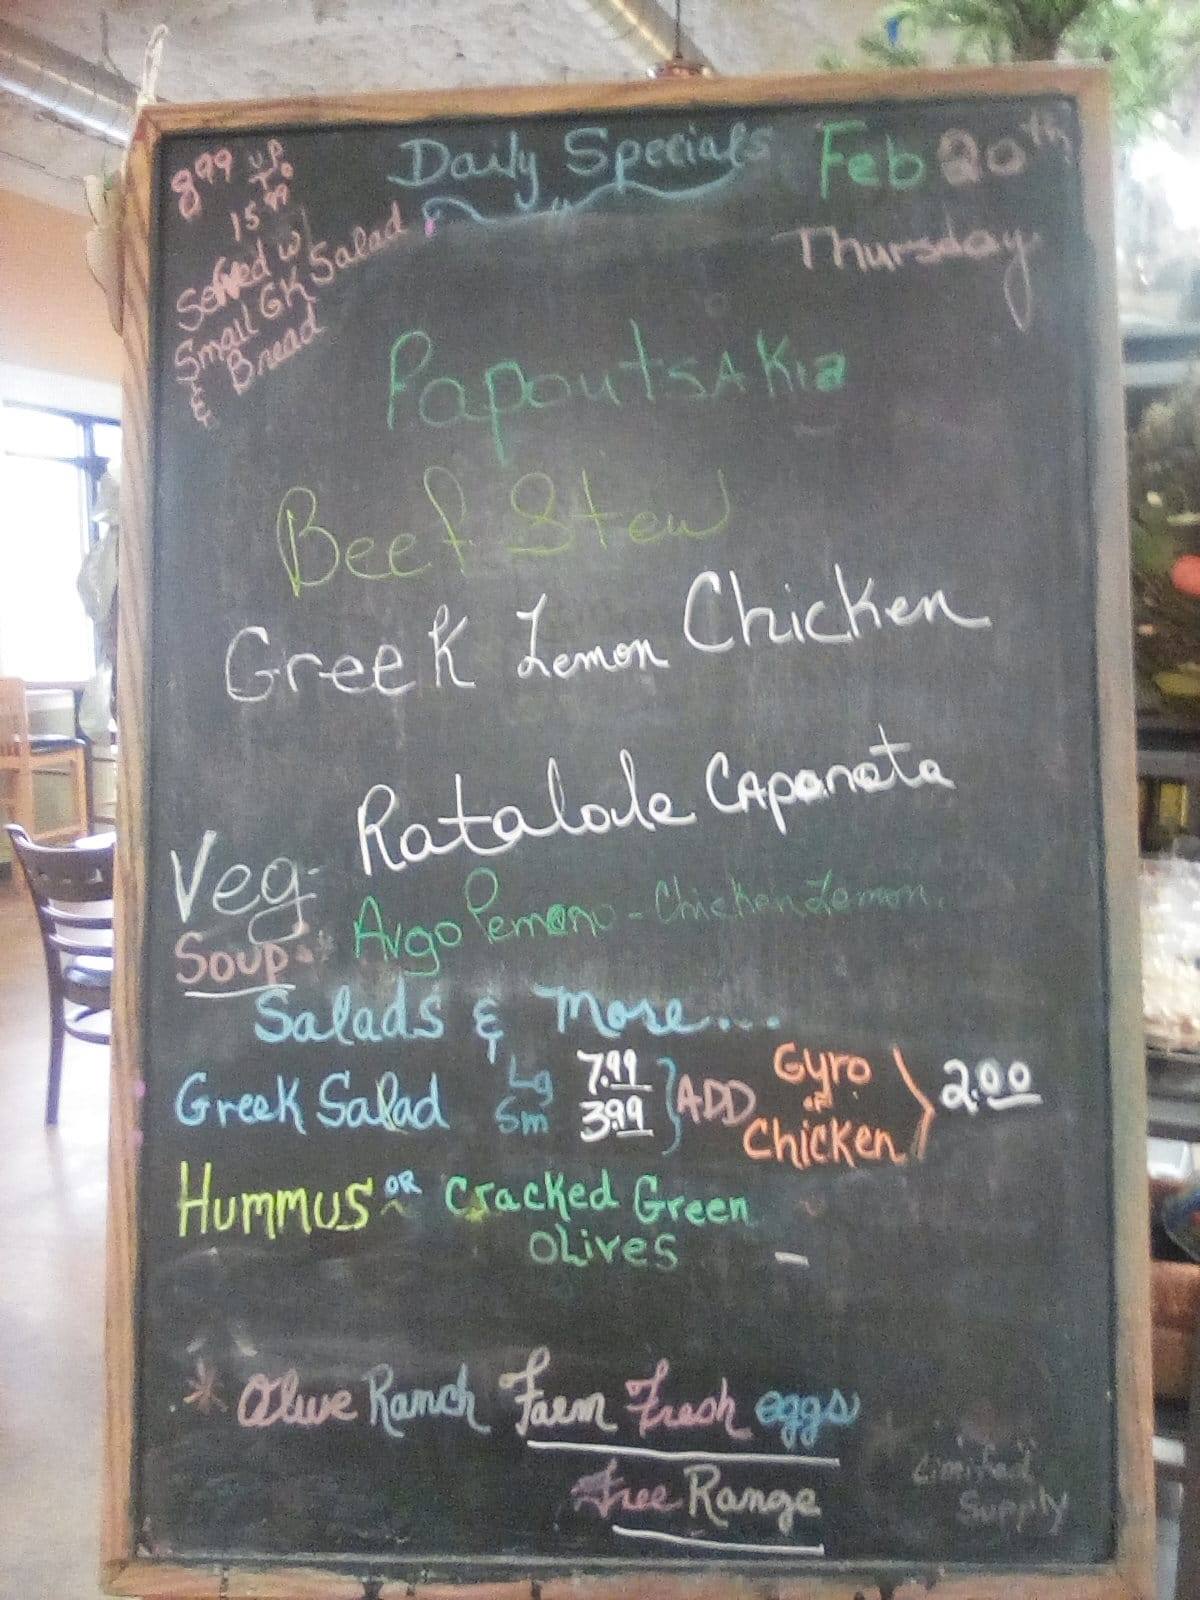 Daily Specials Feb 20th
Thursday
8.99 up
To
15.99
Served w/
Small GK Salad
& Bread
PapoutsAKia
Beef Stew
Greek Lemon Chicken
Veg- Ratalole CAponata
Soup- Avgo Lemono - Chicken Lemon.
Salads & more...
Greek Salad Lg 7.99
Sm 3.99
ADD Gyro or Chicken 2.00
Hummus OR Cracked Green
Olives
* Olive Ranch Farm Fresh eggs
Free Range
Limited
Supply